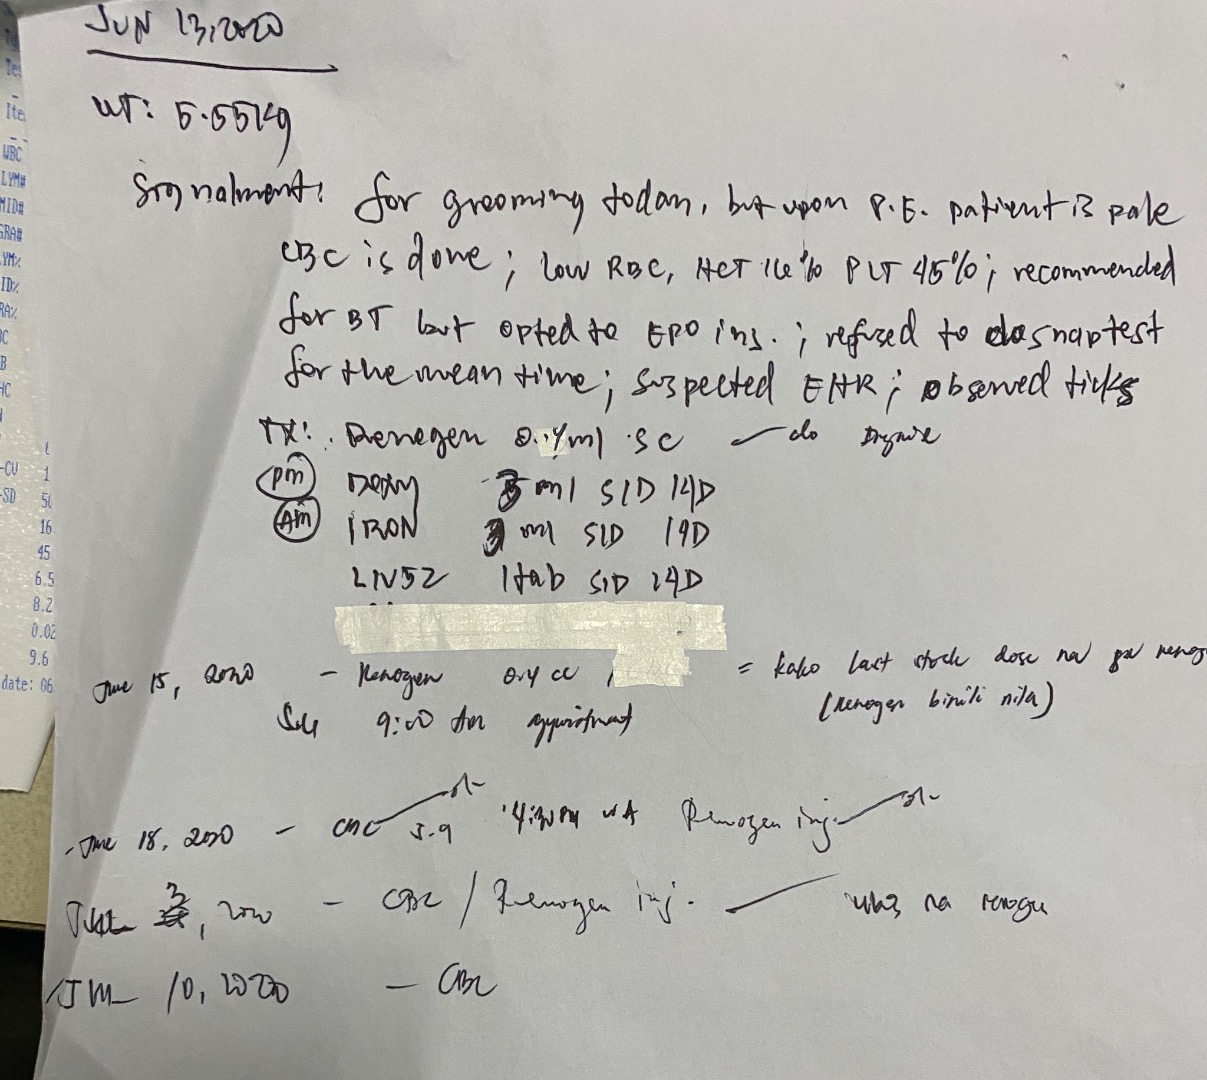 JUN 13, 2020
WT: 5.55kg
Signalment: for grooming today, but upon P.E. patient is pale
CBC is done; low RBC, HCT 16% PLT 45%; recommended
for BT but opted to EPO inj.; refused to do snaptest
for the mean time; suspected EHR; observed ticks
TX: Renogen 0.4ml SC do
PM Doxy 5 ml SID 14D
AM IRON ml SID 14D
LIV52 1tab SID 14D
June 15, 2020 - Renogen 0.4 cc = last stock dose na
9:00 am appointment (renogen binili nila)
June 18, 2020 - CBC 5.9 4:30PM Renogen inj.
3, 2020 - CBC / Renogen inj. ubos na
10, 2020 - CBC
Ite
WBC
LYM#
MID#
GRA#
-CV 1
-SD
16
45
6.5
8.2
0.02
9.6
date: 06